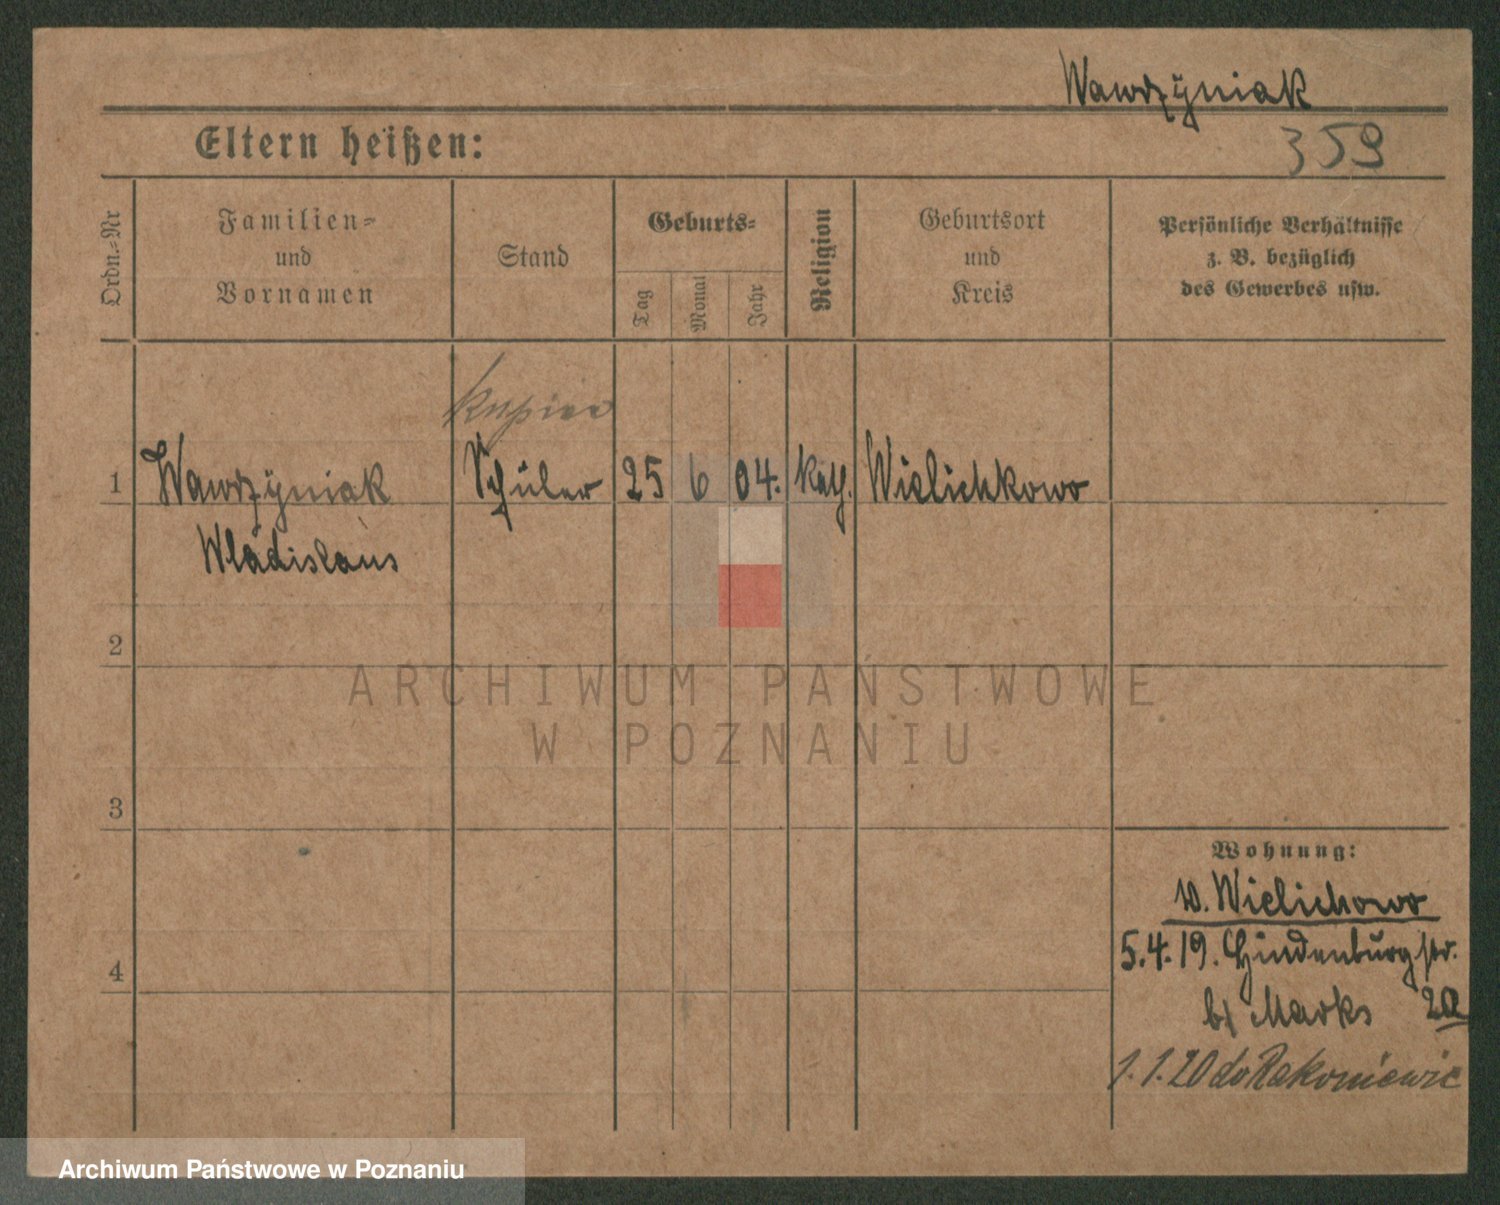 Wawrzyniak
359
Eltern heißen:
Ordn.=Nr
Familien=
und
Vornamen
Stand
Geburts=
Tag
Monat
Jahr
Religion
Geburtsort
und
Kreis
Persönliche Verhältnisse
z. B. bezüglich
des Gewerbes usw.
kupiec
1 Wawrzyniak Schüler 25 6 04. kath. Wielichkowo
Wladislaus
2
ARCHIWUM PAŃSTWOWE
W POZNANIU
3
Wohnung:
W. Wielichowo
5.4.19. Hindenburgstr.
4
b/ Marks 2a
1.1.20 do Rakoniewic
Archiwum Państwowe w Poznaniu